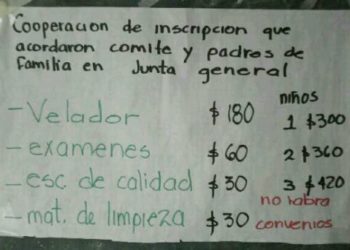 Cooperacion de inscripcion que
acordaron comite y padres de
familia en Junta general
niños
- Velador $180 1 $300
- examenes $60 2 $360
- esc de calidad $30 3 $420
no habra
- mat. de limpieza $30 convenios